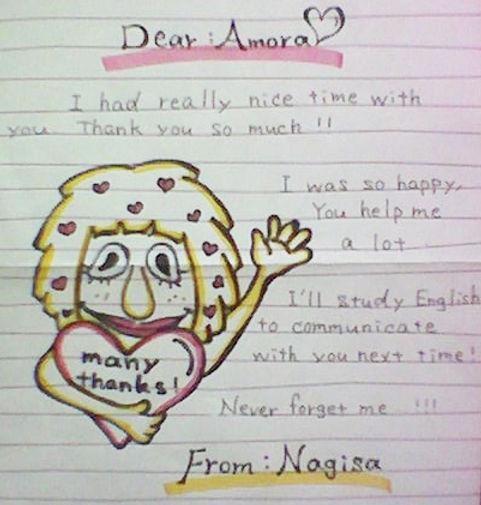 Dear : Amora
I had really nice time with
you Thank you so much !!
I was so happy,
You help me
a lot
I'll study English
to communicate
with you next time!
Never forget me !!!
many
thanks!
From : Nagisa